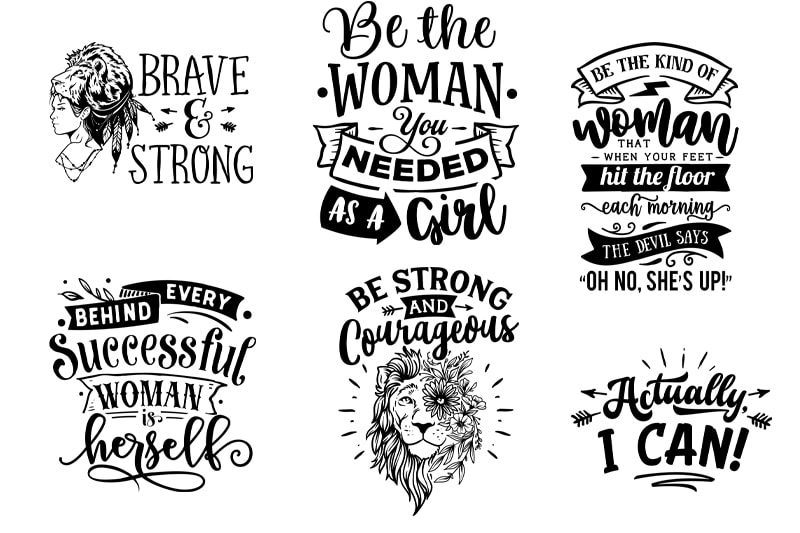 BRAVE
&
STRONG
Be the
WOMAN
You
NEEDED
AS A Girl
BE THE KIND OF
woman
THAT
WHEN YOUR FEET
hit the floor
each morning
THE DEVIL SAYS
"OH NO, SHE'S UP!"
BEHIND EVERY
Successful
WOMAN
is
herself
BE STRONG
AND
Courageous
Actually,
I CAN!